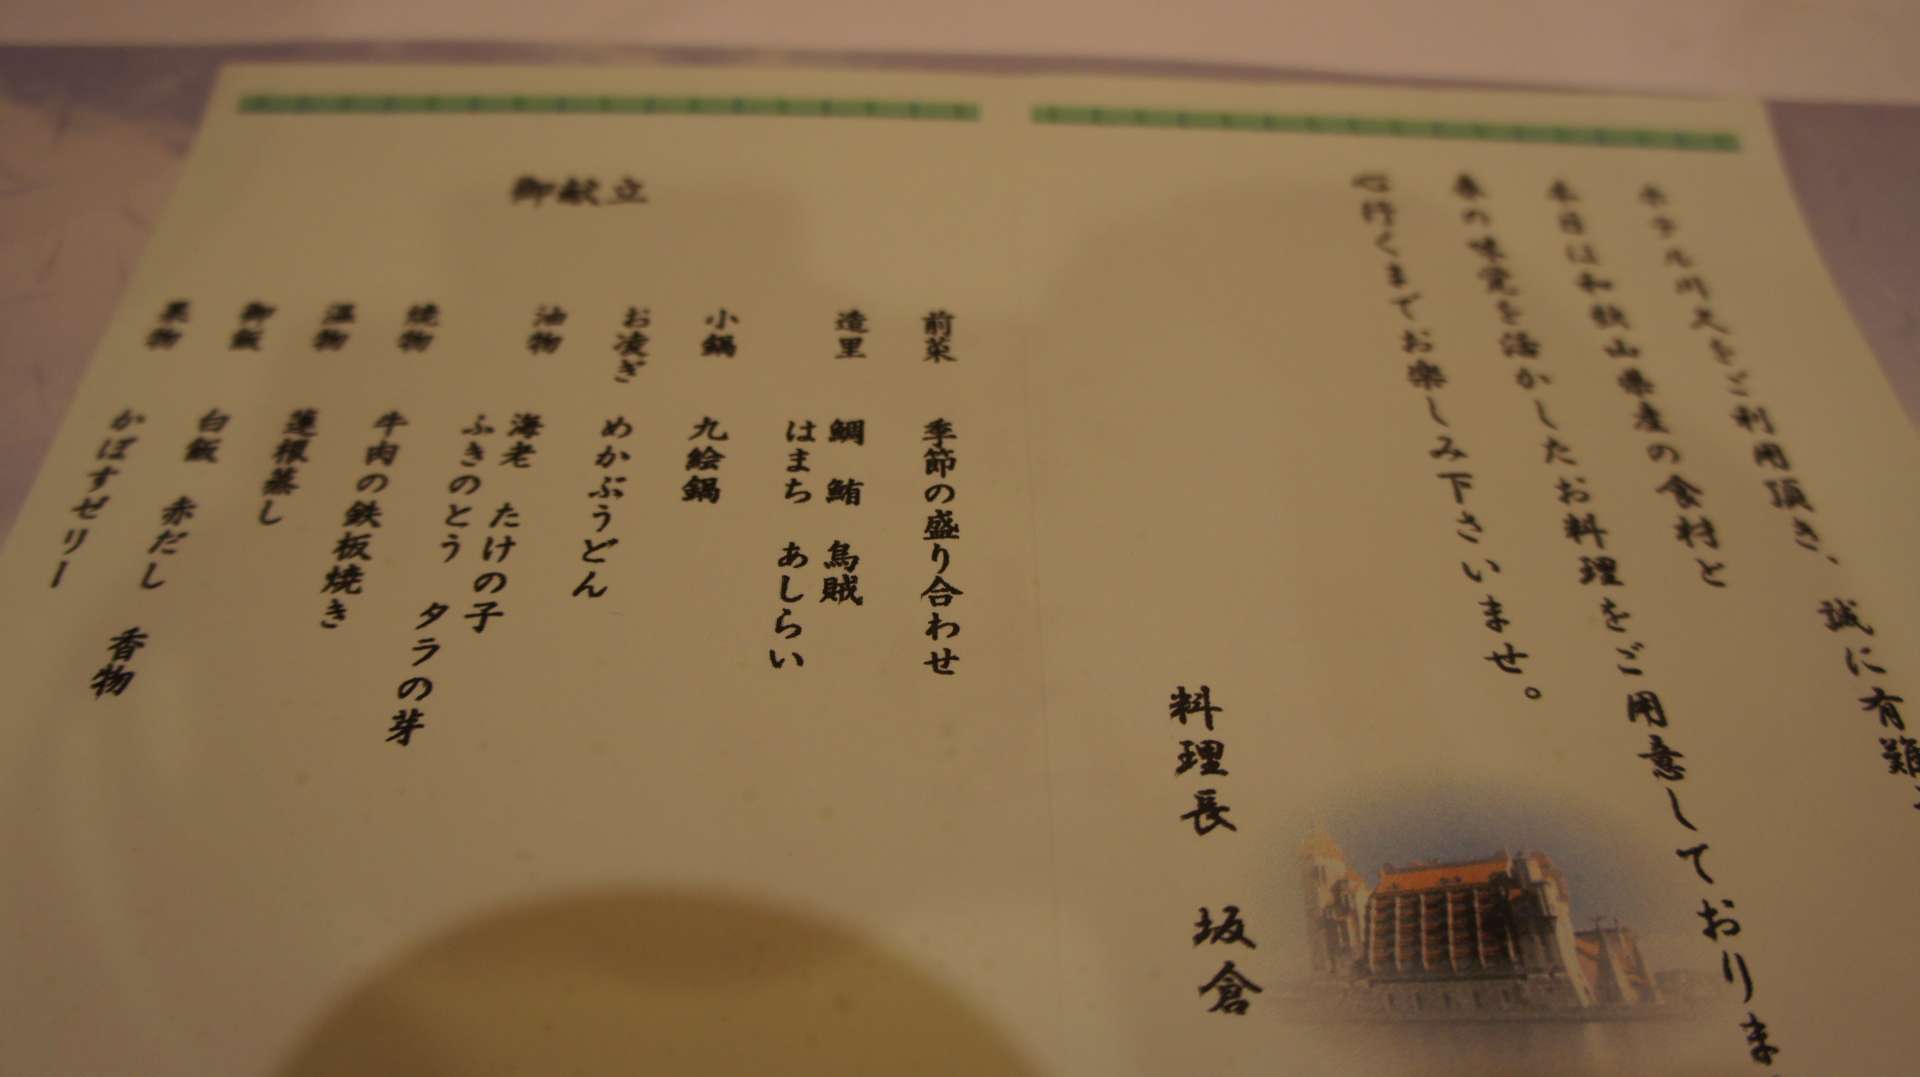 ホテル川久をご利用頂き、誠に有難
本日は和歌山県産の食材と
春の味覚を活かしたお料理をご用意しておりま
心行くまでお楽しみ下さいませ。
料理長 坂倉
御献立
前菜 季節の盛り合わせ
造里 鯛 鮪 烏賊
はまち あしらい
小鍋 九絵鍋
お凌ぎ めかぶうどん
油物 海老 たけの子
ふきのとう タラの芽
焼物 牛肉の鉄板焼き
温物 蓮根蒸し
御飯 白飯 赤だし 香物
果物 かぼすゼリー